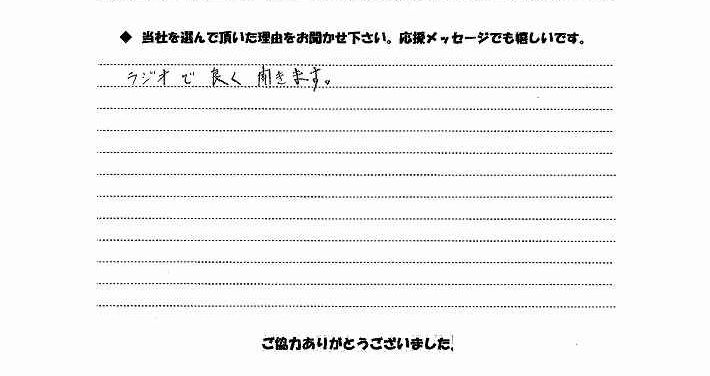 ◆ 当社を選んで頂いた理由をお聞かせ下さい。応援メッセージでも嬉しいです。
ラジオで良く聞きます。
ご協力ありがとうございました。